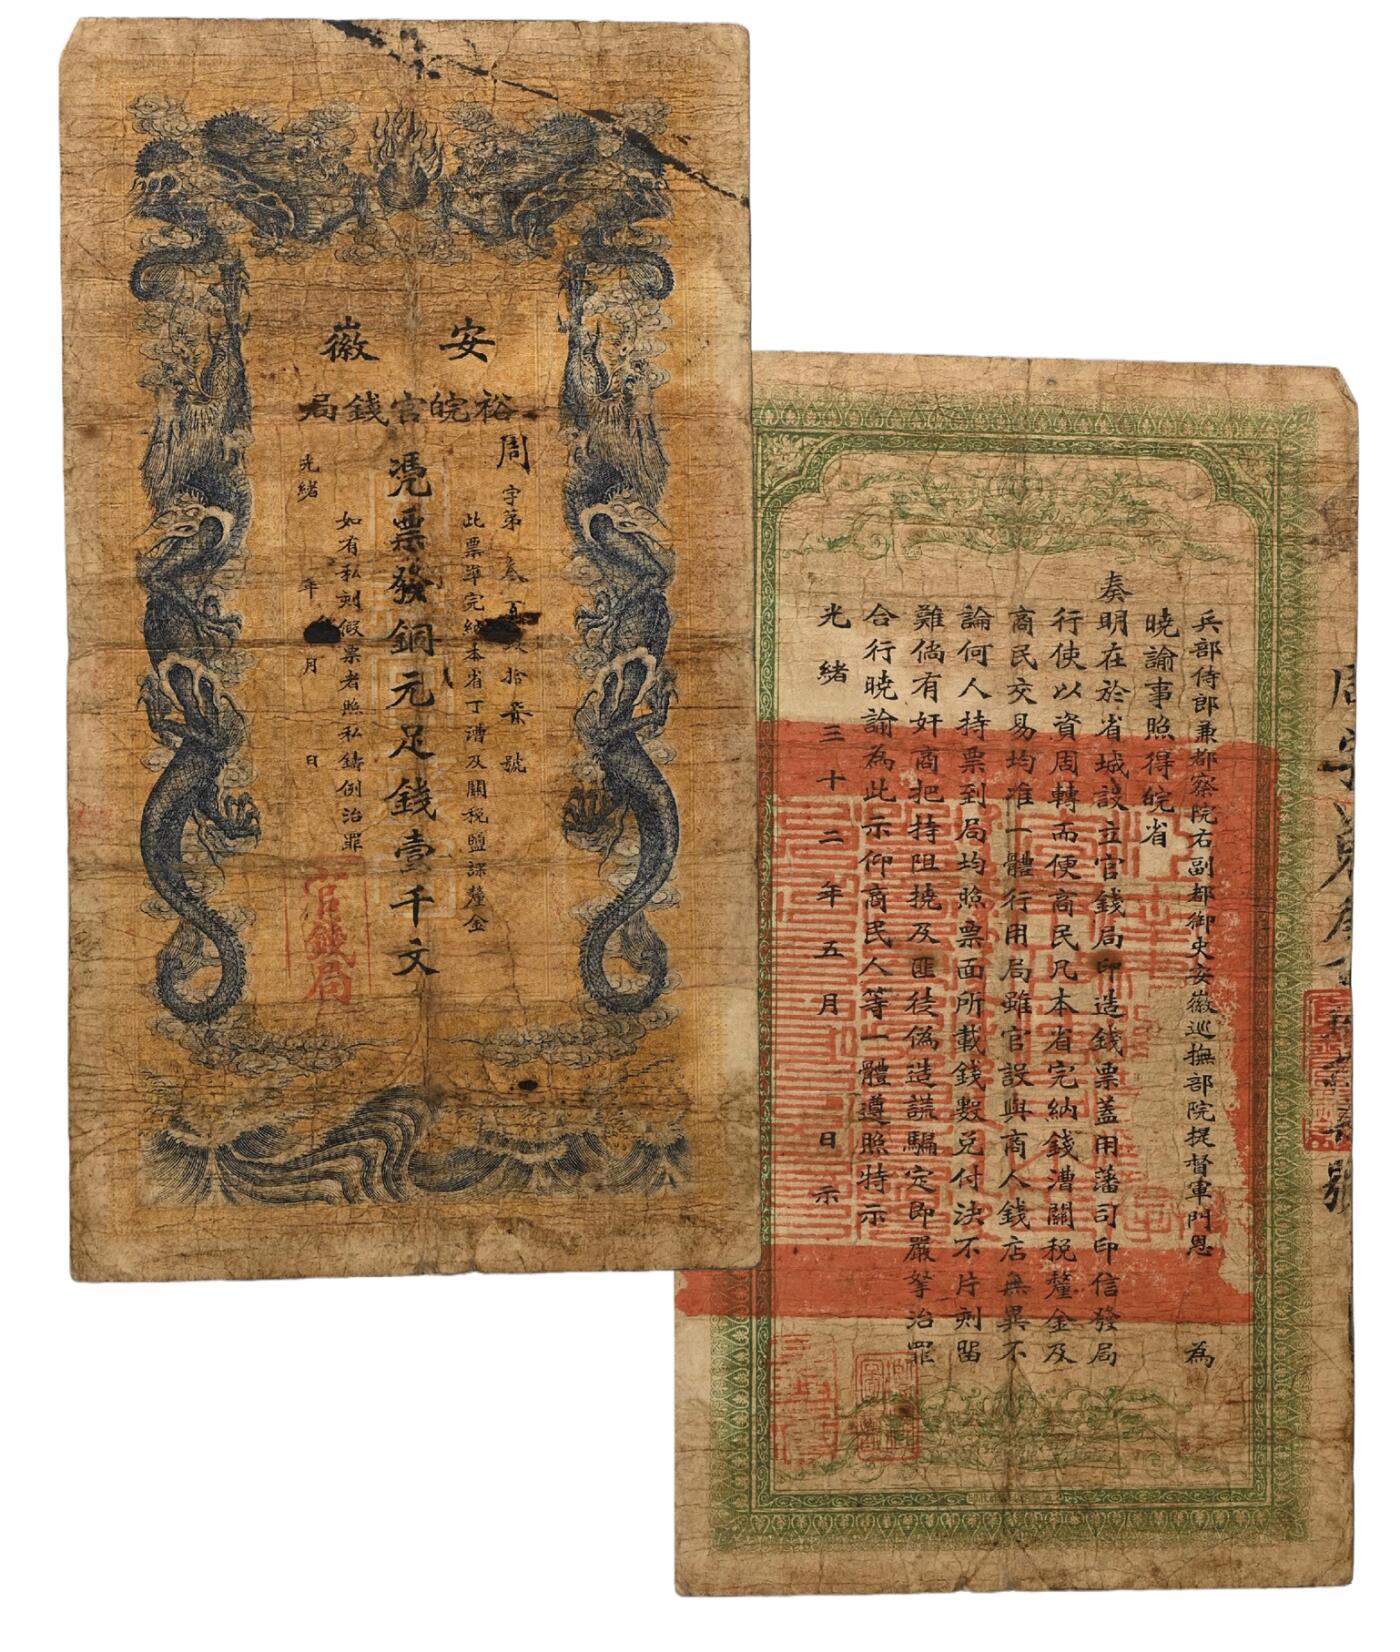 安徽
裕皖官錢局
周字第叁百拾號
此票準完納本省丁漕及關稅鹽課釐金
憑票發銅元足錢壹千文
如有私刻假票者照私鑄例治罪
光緒年月日
官錢局
兵部侍郎兼都察院右副都御史安徽巡撫部院提督軍門恩 為
曉諭事照得皖省
奏明在於省城設立官錢局印造錢票蓋用藩司印信發局
行使以資周轉而便商民凡本省完納錢漕關稅釐金及
商民交易均准一體行用局雖官設與商人錢店無異不
論何人持票到局均照票面所載錢數兌付決不片刻留
難倘有奸商把持阻撓及匪徒偽造謊騙定即嚴拏治罪
合行曉諭為此示仰商民人等一體遵照特示
光緒三十二年五月 日示
號